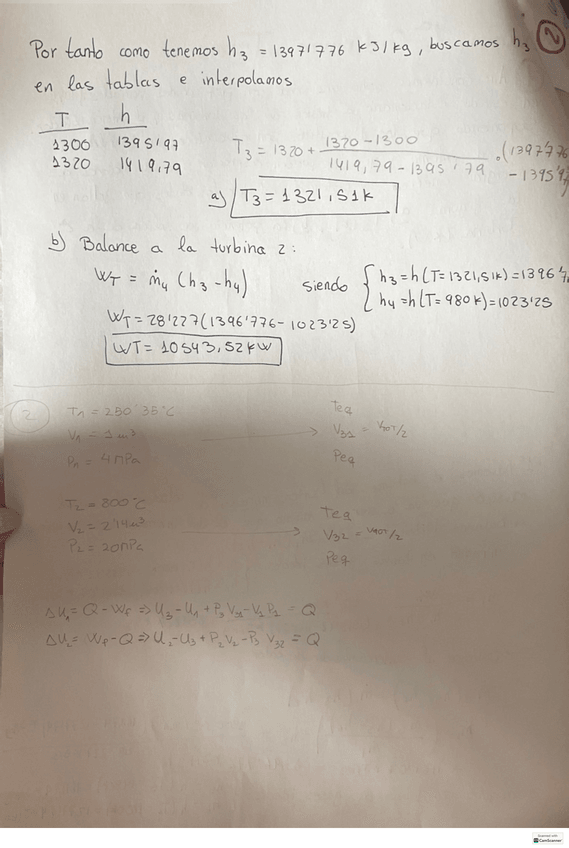 2
Por tanto como tenemos h3 = 1397'776 kJ/kg, buscamos h3
en las tablas e interpolamos
T h
1300 1395'97
1320 1419,79
T3 = 1320 + (1320-1300)/(1419,79-1395'79) · (1397'776 - 1395'97
a) T3 = 1321,51K
b) Balance a la turbina 2:
WT = ṁ4 (h3-h4) siendo { h3 = h(T=1321,51K) = 1396'7
h4 = h(T=980K) = 1023'25
WT = 28'227(1396'776-1023'25)
WT = 10543,52kW
2.
T1 = 250'35°C Teq
V1 = 1 m³ → V31 = VTOT/2
P1 = 4MPa Peq
T2 = 800°C Teq
V2 = 2'14m³ → V32 = VTOT/2
P2 = 20MPa Peq
ΔU1 = Q - Wf => U3-U1 + P3 V31 - V1 P1 = Q
ΔU2 = Wf-Q => U2-U3 + P2V2 - P3 V32 = Q
Scanned with
CamScanner